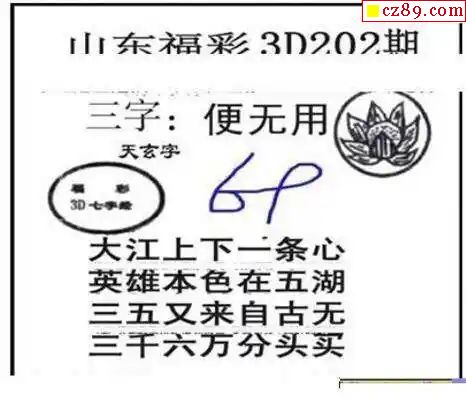 cz89.com
山东福彩3D202期
三字：便无用
天玄字
福彩
3D七字经
大江上下一条心
英雄本色在五湖
三五又来自古无
三千六万分头买